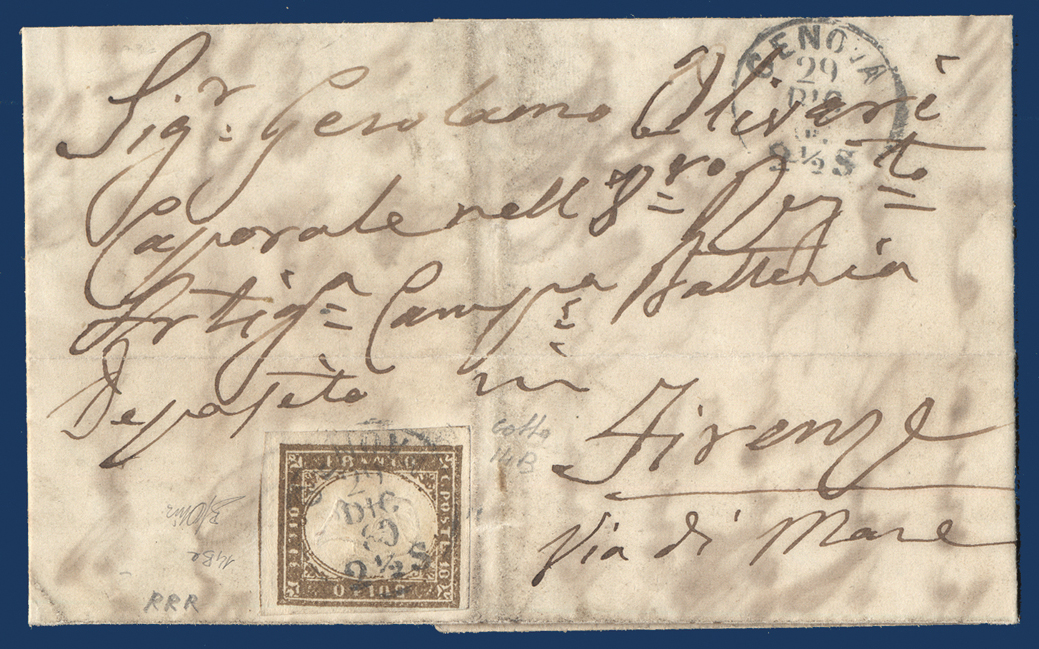 GENOVA
29
DIC
2½S
Sig.r Gerolamo Olivari
Caporale nell 8.ro Reg.to
Artig.a Camp.a Batteria
Deposito in
Firenze
Via di Mare
cotto
14B
RRR
FRANCO
C. POSTE 10
BOLLO
29
DIC
60
2½S